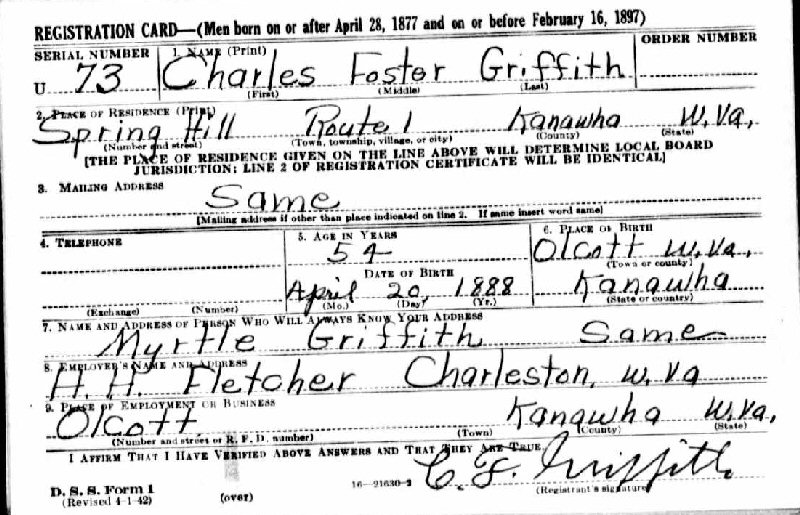 REGISTRATION CARD—(Men born on or after April 28, 1877 and on or before February 16, 1897)
SERIAL NUMBER 1. NAME (Print) ORDER NUMBER
U 73 Charles Foster Griffith
(First) (Middle) (Last)
2. PLACE OF RESIDENCE (Print)
Spring Hill Route 1 Kanawha W. Va.
(Number and street) (Town, township, village, or city) (County) (State)
[THE PLACE OF RESIDENCE GIVEN ON THE LINE ABOVE WILL DETERMINE LOCAL BOARD
JURISDICTION; LINE 2 OF REGISTRATION CERTIFICATE WILL BE IDENTICAL]
3. MAILING ADDRESS
Same
[Mailing address if other than place indicated on line 2. If same insert word same]
4. TELEPHONE 5. AGE IN YEARS 6. PLACE OF BIRTH
54 Olcott W. Va.
(Town or county)
DATE OF BIRTH
April 20, 1888 Kanawha
(Exchange) (Number) (Mo.) (Day) (Yr.) (State or country)
7. NAME AND ADDRESS OF PERSON WHO WILL ALWAYS KNOW YOUR ADDRESS
Myrtle Griffith Same
8. EMPLOYER'S NAME AND ADDRESS
H. H. Fletcher Charleston, W. Va
9. PLACE OF EMPLOYMENT OR BUSINESS
Olcott. Kanawha W. Va.
(Number and street or R. F. D. number) (Town) (County) (State)
I AFFIRM THAT I HAVE VERIFIED ABOVE ANSWERS AND THAT THEY ARE TRUE.
C. F. Griffith
D. S. S. Form 1 16—21630-2 (Registrant's signature)
(Revised 4-1-42) (over)